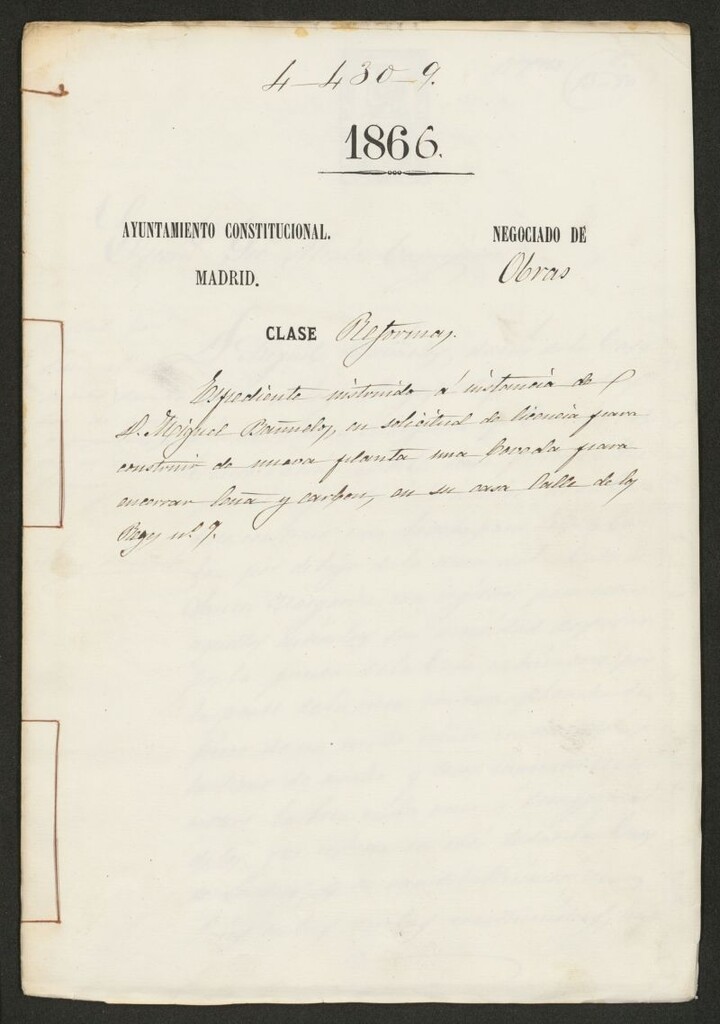 4-430-9.
1866.
AYUNTAMIENTO CONSTITUCIONAL.
MADRID.
NEGOCIADO DE
Obras
CLASE Reformas.
Espediente instruido á instancia de
D. Miguel Bañuelos, en solicitud de licencia para
construir de nueva planta una boveda para
encerrar leña y carbon, en su casa Calle de los
Reyes nº 9.